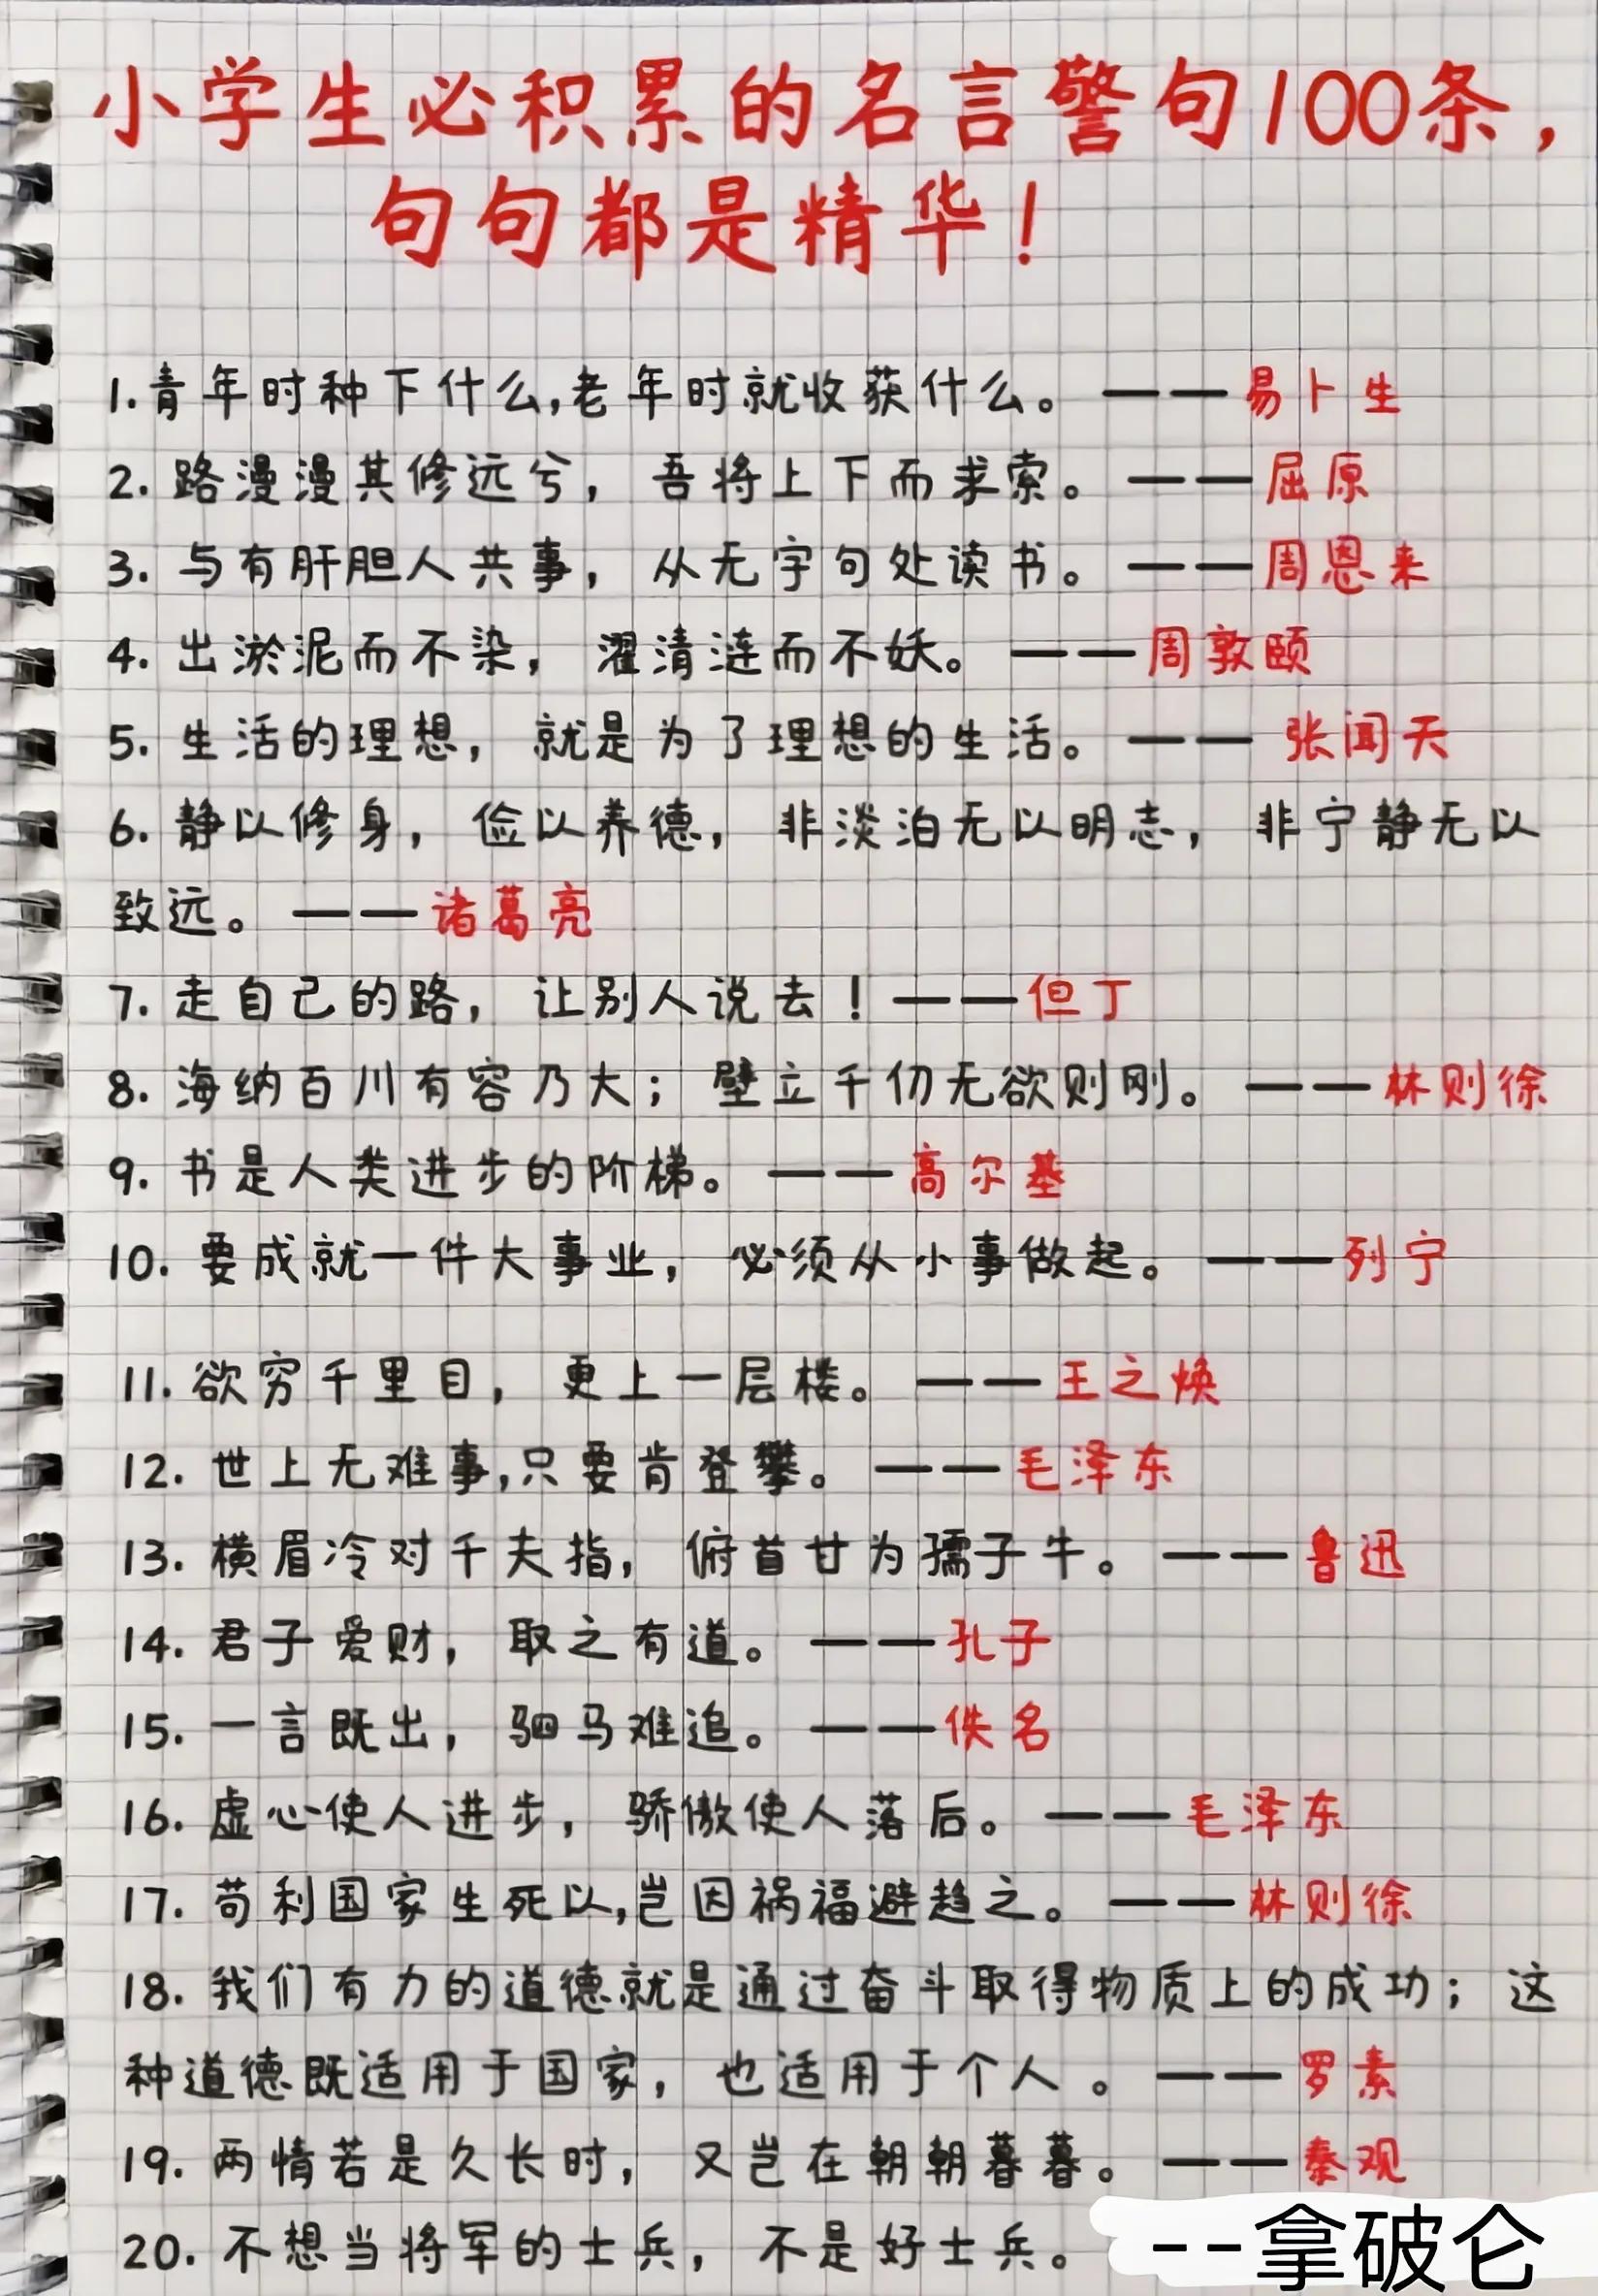 小学生必积累的名言警句100条，
句句都是精华！
1.青年时种下什么,老年时就收获什么。——易卜生
2. 路漫漫其修远兮，吾将上下而求索。——屈原
3. 与有肝胆人共事，从无字句处读书。——周恩来
4. 出淤泥而不染，濯清涟而不妖。——周敦颐
5. 生活的理想，就是为了理想的生活。——张闻天
6. 静以修身，俭以养德，非淡泊无以明志，非宁静无以
致远。——诸葛亮
7. 走自己的路，让别人说去！——但丁
8. 海纳百川有容乃大；壁立千仞无欲则刚。——林则徐
9. 书是人类进步的阶梯。——高尔基
10. 要成就一件大事业，必须从小事做起。——列宁
11. 欲穷千里目，更上一层楼。——王之焕
12. 世上无难事,只要肯登攀。——毛泽东
13. 横眉冷对千夫指，俯首甘为孺子牛。——鲁迅
14. 君子爱财，取之有道。——孔子
15. 一言既出，驷马难追。——佚名
16. 虚心使人进步，骄傲使人落后。——毛泽东
17. 苟利国家生死以,岂因祸福避趋之。——林则徐
18. 我们有力的道德就是通过奋斗取得物质上的成功；这
种道德既适用于国家，也适用于个人。——罗素
19. 两情若是久长时，又岂在朝朝暮暮。——秦观
20. 不想当将军的士兵，不是好士兵。--拿破仑